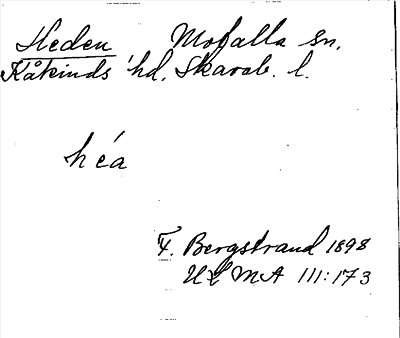 Heden Mofalla sn.
Kåkinds hd. Skarab. l.
héa
F. Bergstrand 1898
ULMA 111:173